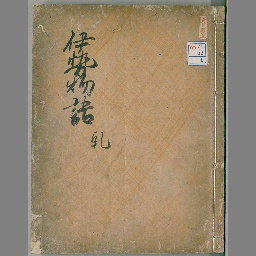 伊勢物語
乾